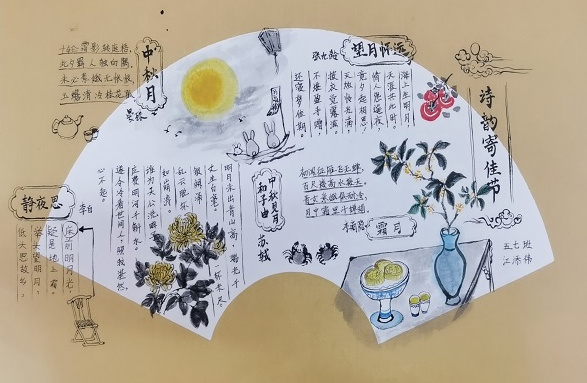 诗韵寄佳节
望月怀远
张九龄
海上生明月,
天涯共此时。
情人怨遥夜,
竟夕起相思。
灭烛怜光满,
披衣觉露滋。
不堪盈手赠,
还寝梦佳期。
中秋月
晏殊
轮霜影转庭梧,
夕羁人独向隅。
未必素娥无怅恨,
玉蟾清冷桂花孤。
霜月
李商隐
初闻征雁已无蝉,
百尺楼高水接天。
青女素娥俱耐冷,
月中霜里斗婵娟。
中秋见月
和子由
苏轼
明月未出青山高,瑞光千
丈生白毫。一杯未尽
银阙涌,
乱云脱坏
如崩涛。
谁为天公洗眸子,
应费明河千斛水。
遂令冷看世间人,照我湛然
心不起。
静夜思
李白
床前明月光,
疑是地上霜。
举头望明月,
低头思故乡。
五七班